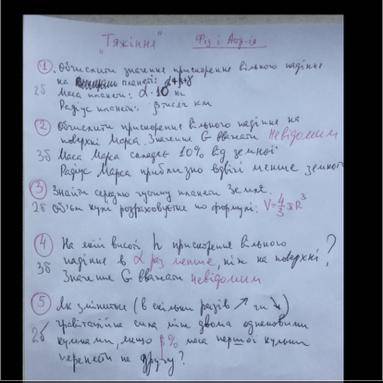 "Тяжіння" Фіз і Астр-ія
1. Обчислити значення прискорення вільного падіння
на планеті:
2б Маса планети: кг
Радіус планети: β тисяч км
2 Обчислити прискорення вільного падіння на
поверхні Марса. Значення G вважати невідомим
3б Маса Марса складає 10% від земної
Радіус Марса приблизно вдвічі менше земного
3 Знайти середню густину планети Земля.
2б Об'єм кулі розраховується по формулі: V=4/3 πR³
4 На якій висоті h прискорення вільного
3б падіння в α раз менше, ніж на поверхні?
Значення G вважати невідомим
5 Як зміниться (в скільки разів ↗ чи ↘)
2б гравітаційна сила між двома однаковими
кулями, якщо β% маси першої кульки
перенести на другу?